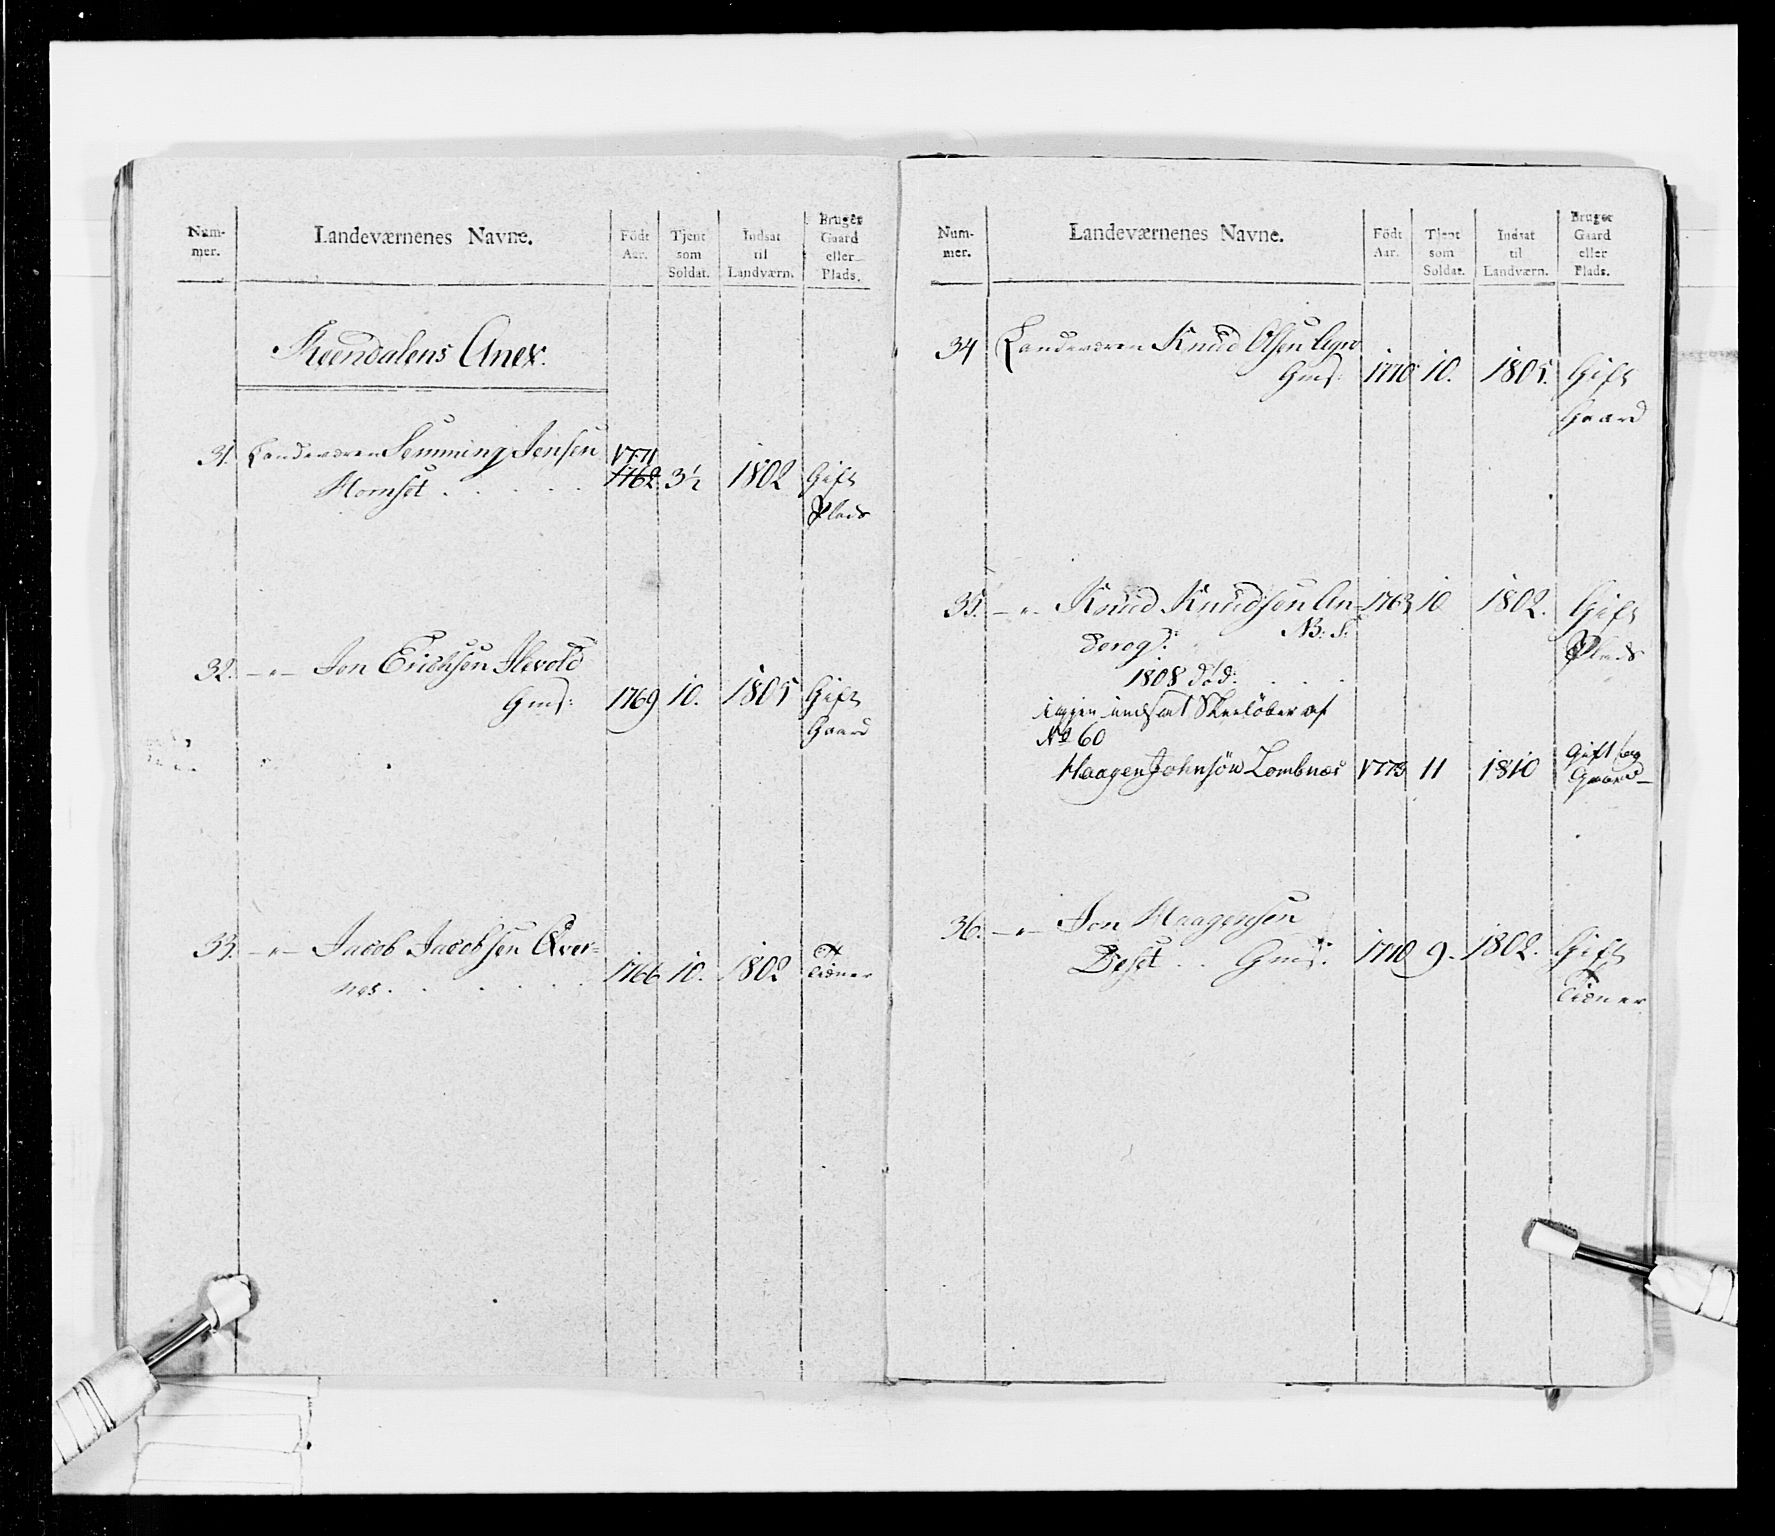 Num-
mer.
Landeværnenes Navne.
Födt
Aar.
Tjent
som
Soldat.
Indsat
til
Landværn.
Bruger
Gaard
eller
Plads.
Reendalens Anex.
31. Landeværn Semming Jensen 1771
Hornset . . . . . 1762 3½ 1802 Gift
Plads
32. -"- Jon Erichsen Ilevold
Gms: 1769 10. 1805 Gift
Gaard
33. -"- Jacob Jacobsen Qver-
nes . . . . . . 1766 10. 1802 tiener
Num-
mer.
Landeværnenes Navne.
Födt
Aar.
Tjent
som
Soldat.
Indsat
til
Landværn.
Bruger
Gaard
eller
Plads.
34 Landeværn Knud Olsen
Gms: 1770 10. 1805. Gift
Gaard
35. -"- Knud Knudsen An- 1763 10 1802. Gift
N: S:
Plads
1808 død: . . .
igjen indsat Skielöber af
No 60
Haagen Johnsön Lombnæs 1773 11 1810 Gift og
Gaard
36. -"- Jon Haagensen
Beset . . Gms: 1770 9. 1802. Gift
tiener